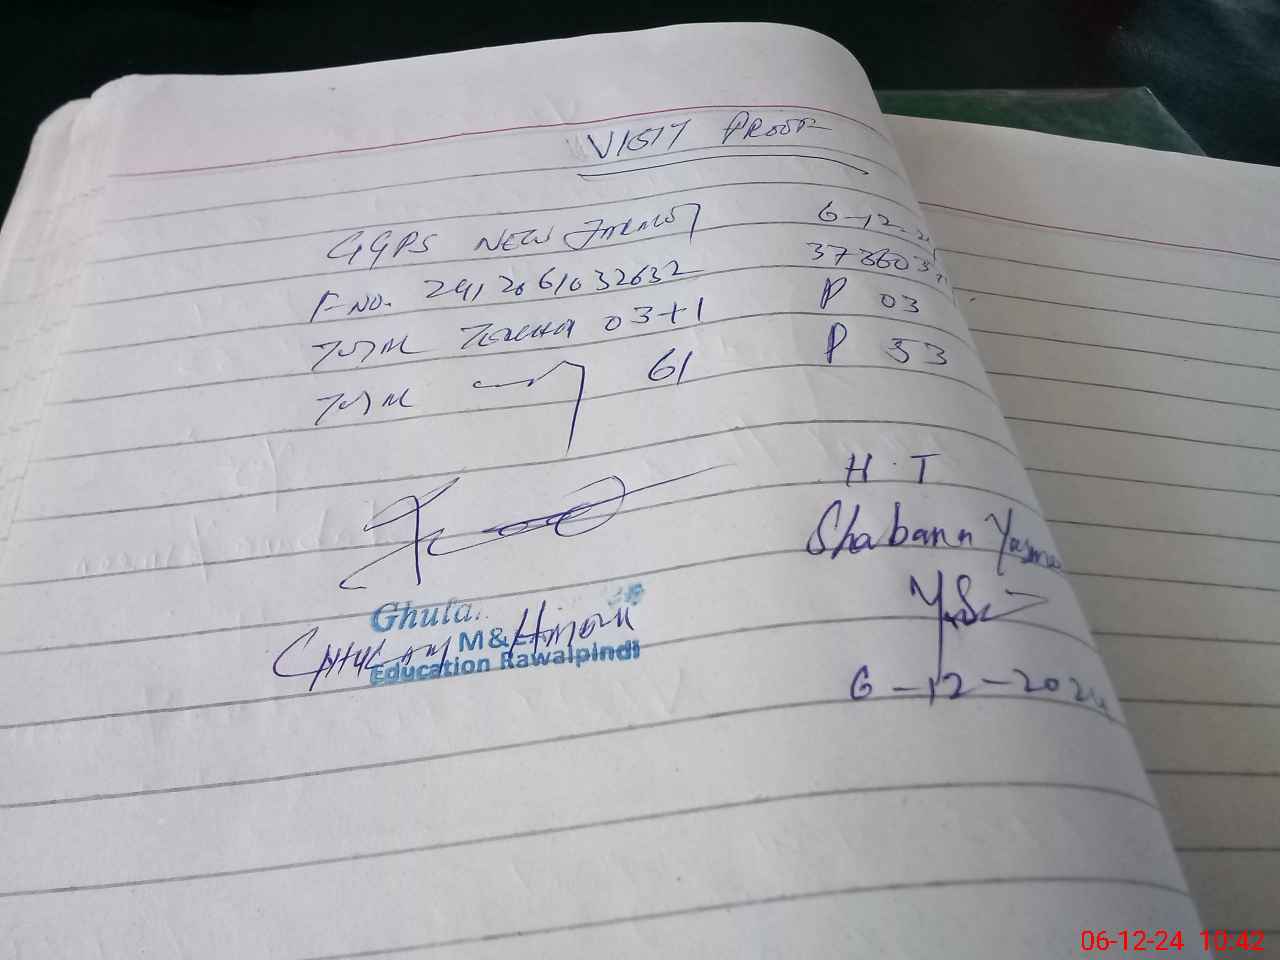 VISIT PROOF
GGPS NEW 6-12-
F-NO. 2412061032632 373603
TOTAL TEACHER 03+1 P 03
TOTAL 61 P 53
H.T
Shabana Yasmeen
Ghula
GHULAM
M&E
Education Rawalpindi
6-12-2024
06-12-24 10:42